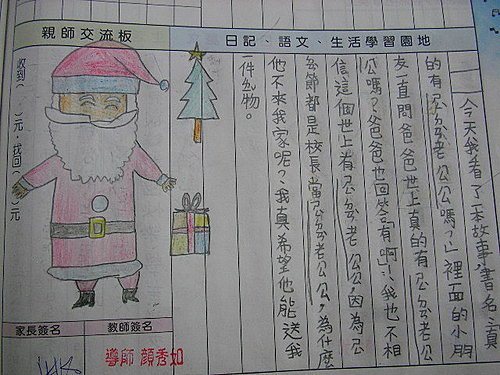 親師交流板
日記、語文、生活學習園地
收到(　)元,找回(　)元
今天我看了一本故事，書名：真
的有老公公嗎？」裡面的小朋
友一直問爸爸世上真的有老公
公嗎？爸爸也回答「有啊」，我也不相
信這個世上有老公公，因為
節都是校長當老公公，為什麼
他不來我家呢？我真希望他能送我
件物。
家長簽名
教師簽名
導師 顏秀如